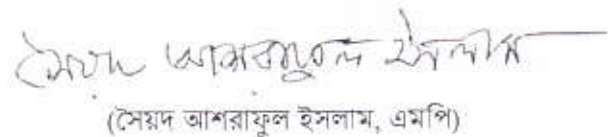 সৈয়দ আশরাফুল ইসলাম
(সৈয়দ আশরাফুল ইসলাম, এমপি)